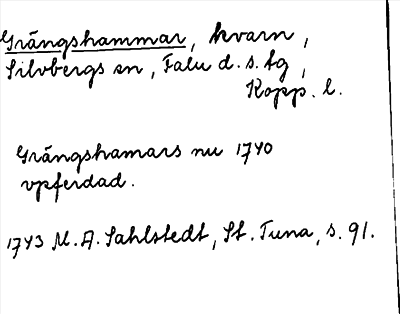 Grängshammar, kvarn,
Silvbergs sn, Falu d. s. tg,
Kopp. l.
Grängshamars nu 1740
vpferdad.
1743 M. A. Sahlstedt, St. Tuna, s. 91.